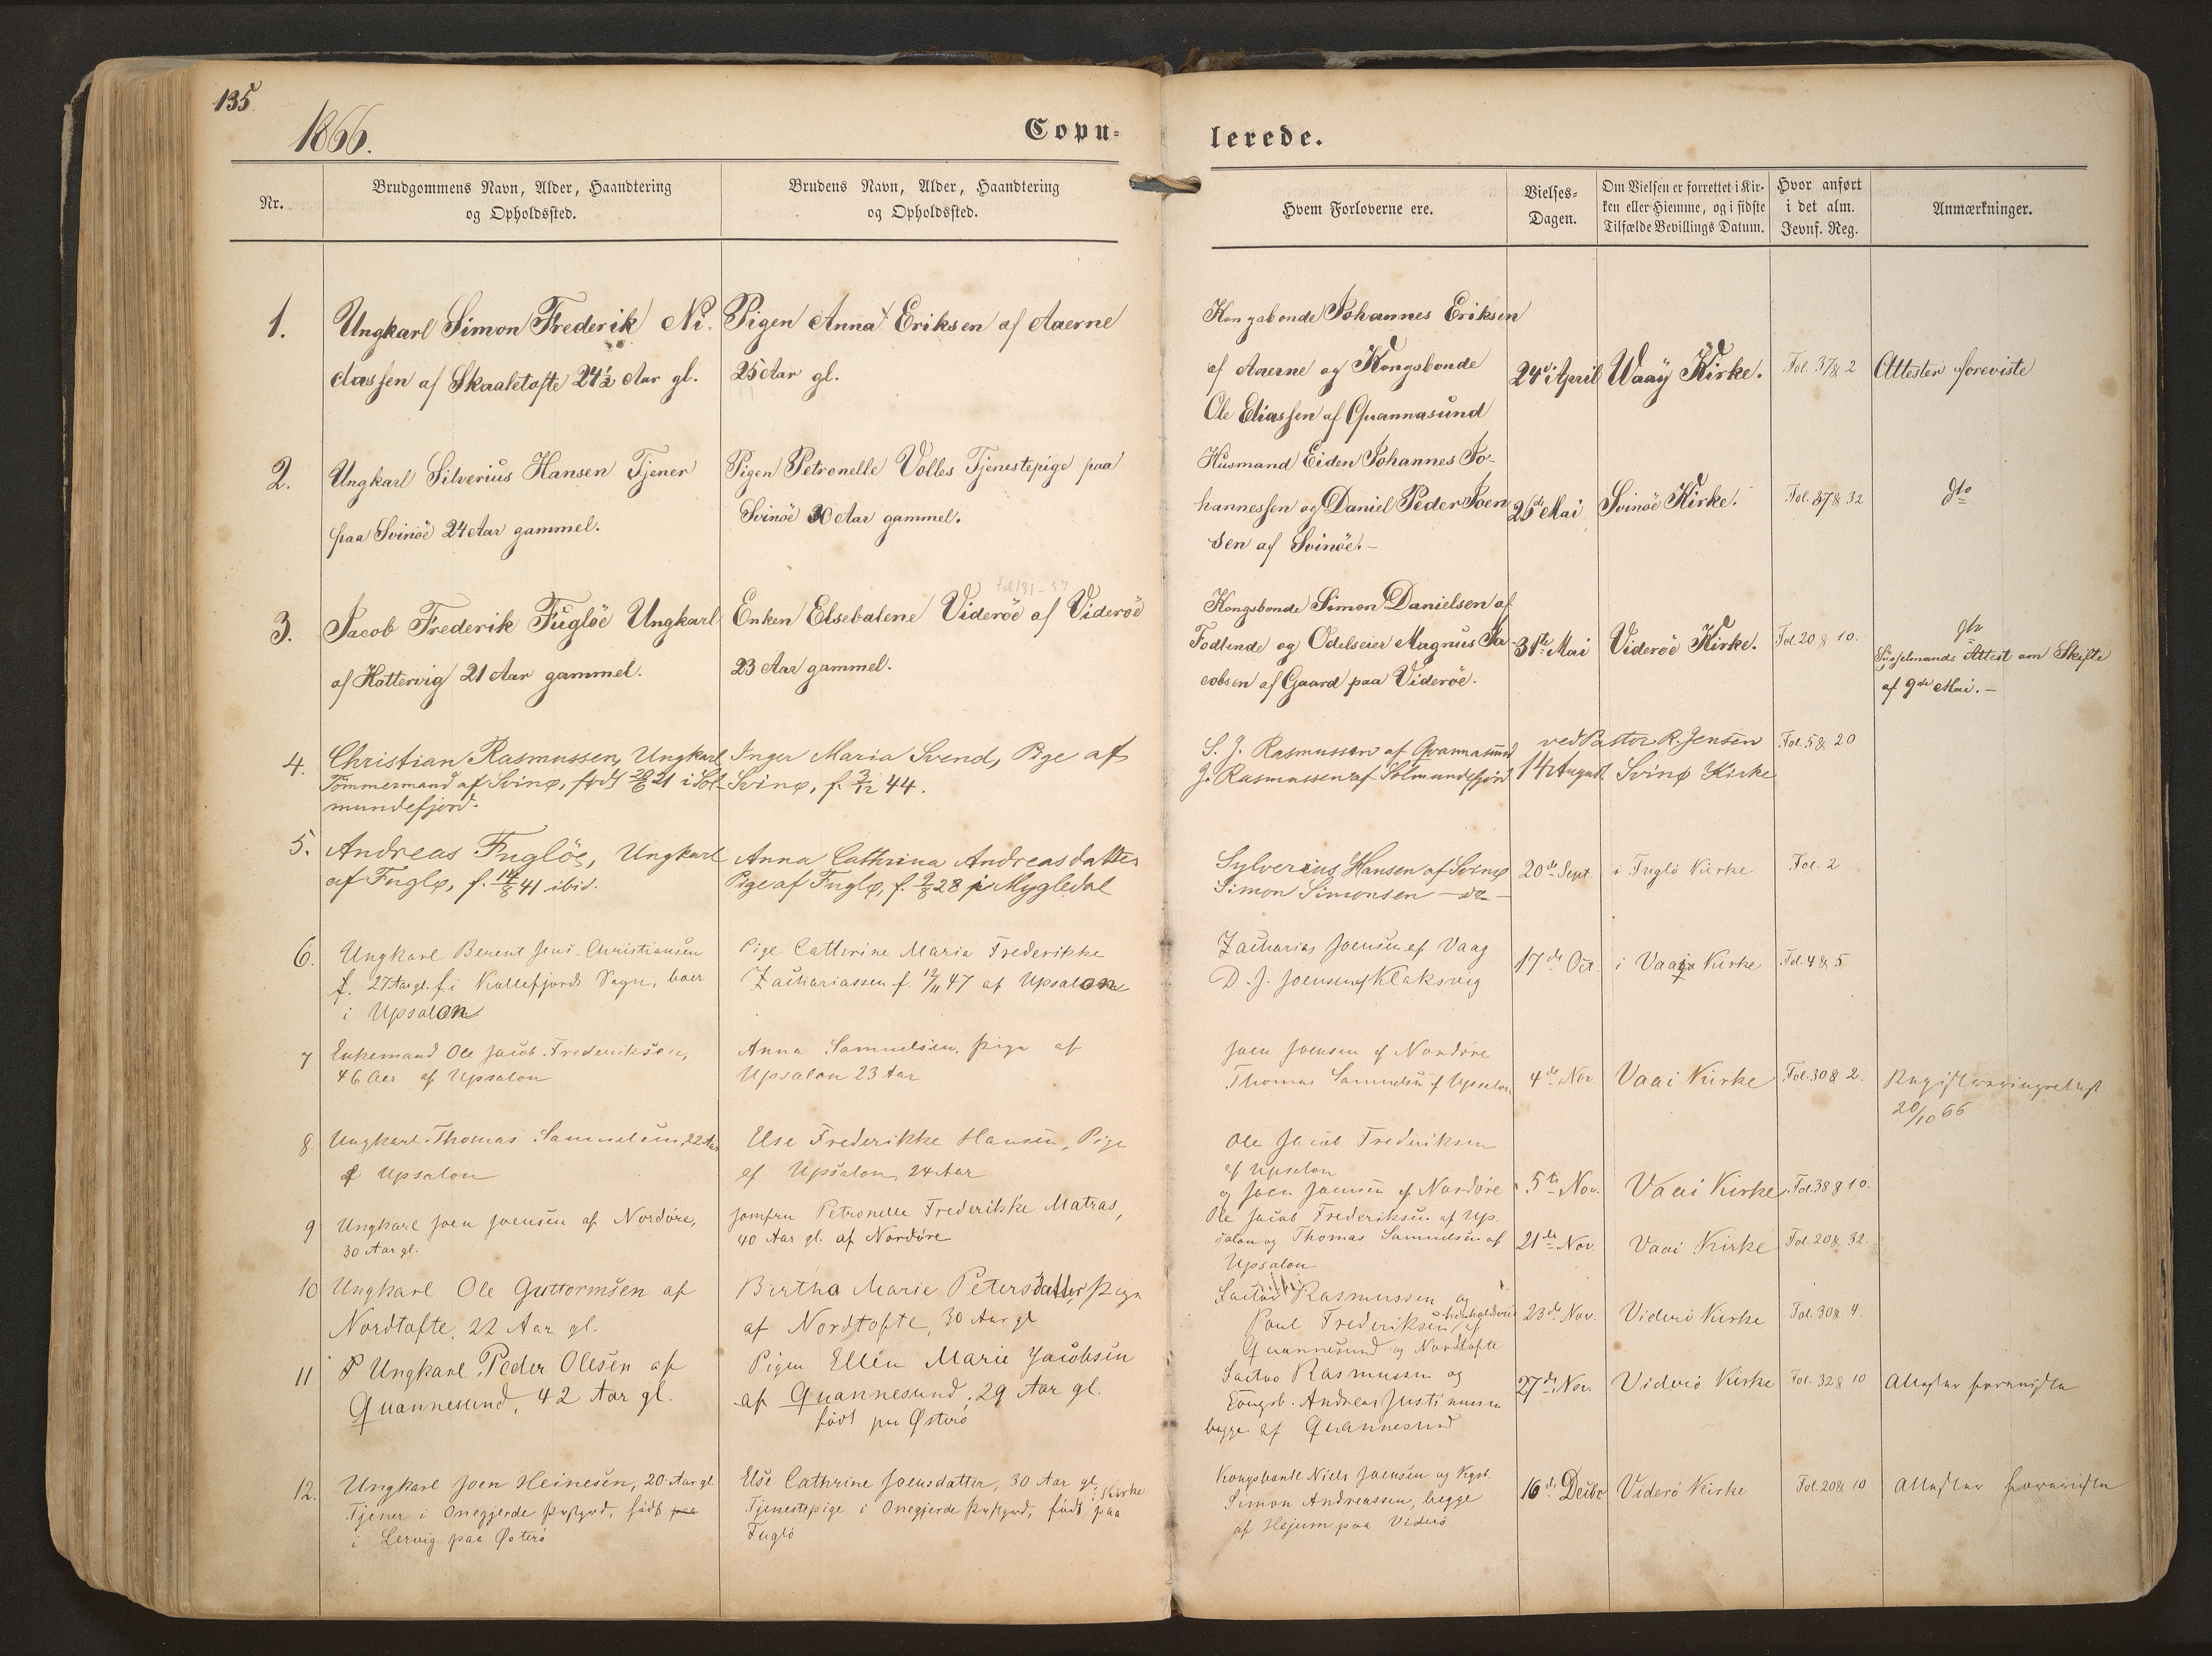 135.
1866.
Copu-
lerede.
Nr.
Brudgommens Navn, Alder, Haandtering
og Opholdssted.
Brudens Navn, Alder, Haandtering
og Opholdssted.
Hvem Forloverne ere.
Vielses-
Dagen.
Om Vielsen er forrettet i Kir-
ken eller Hiemme, og i sidste
Tilfælde Bevillings Datum.
Hvor anført
i det alm.
Jevnf. Reg.
Anmærkninger.
1.
Ungkarl Simon Frederik Ni-
classen af Skaaletofte 24½ Aar gl.
Pigen Anna Eriksen af Aaerne
25 Aar gl.
Kongsbonde Johannes Eriksen
af Aaerne og Kongsbonde
Ole Eliassen af Quannasund
24de April
Waaÿ Kirke.
Fol. 37 & 2
Attester foreviste
2.
Ungkarl Silverius Hansen Tjener
paa Svinöe 24 Aar gammel.
Pigen Petronelle Volles Tjenestepige paa
Svinöe 30 Aar gammel.
Husmand Eiden Johannes Jo-
hannessen og Daniel Peder Joen
sen af Svinöe.-
25de Mai
Svinöe Kirke.
Fol. 37 & 32
dto
3.
Jacob Frederik Fuglöe Ungkarl
af Hattervig 21 Aar gammel.
Enken Elsebalene Videröe af Videröe
23 Aar gammel.
Kongsbonde Simon Danielsen af
Fodlende og Odelseier Magnus Ja-
cobsen af Gaard paa Videröe.
31te Mai
Videröe Kirke.
Fol. 20 & 10.
dto
Sysselmands Attest om Skifte
af 9de Mai.-
4.
Christian Rasmussen, Ungkarl
Tömmermand af Svinø, født 28/6 21 i Sol-
mundefjord.
Inger Maria Svend, Pige af
Svinø, f. 3/12 44.
S. J. Rasmussen af Qvannasund
J. Rasmussen af Solmundefjord
ved Pastor R. Jensen
14 August
Svinø Kirke
Fol. 5 & 20
5.
Andreas Fuglöe, Ungkarl
af Fuglø, f. 14/8 41 ibid.
Anna Cathrina Andreasdatter
Pige af Fuglø, f. 9/8 28 i Mygledal
Sylverius Hansen af Svinø
Simon Simonsen - do -
20de Sept.
i Fuglö Kirke
Fol. 2
6.
Ungkarl Berent Jens Christiansen
f. 27 Aar gl. f. i Kollefjords Sogn, boer
i Upsalon
Pige Cathrine Maria Frederikke
Zachariassen f. 12/11 47 af Upsalon
Zacharias Joensen af Vaag
D. J. Joensen af Klaksvig
17de Oct.
i Vaaÿ Kirke
Fol. 4 & 5
7
Enkemand Ole Jacob Frederiksen,
46 Aar af Upsalon
Anna Samuelsen, Pige af
Upsalon 23 Aar
Joen Joensen af Nordöre
Thomas Samuelsen af Upsalon
4de Nov.
Vaai Kirke
Fol. 30 & 2.
Registreringsattest
20/10 66
8.
Ungkarl Thomas Samuelsen, 22 Aar
af Upsalon
Else Frederikke Hansen, Pige
af Upsalon, 24 Aar
Ole Jacob Frederiksen
af Upsalon
og Joen Joensen af Nordöre
5te Nov.
Vaai Kirke
Fol. 38 & 10.
9
Ungkarl Joen Joensen af Nordöre,
30 Aar gl.
Jomfru Petronelle Frederikke Matras,
40 Aar gl. af Nordöre
Ole Jacob Frederiksen af Up-
salon og Thomas Samuelsen af
Upsalon
21de Nov.
Vaai Kirke
Fol. 20 & 32.
10
Ungkarl Ole Guttormsen af
Nordtofte, 22 Aar gl.
Birtha Marie Petersdatter, Pige
af Nordtofte, 30 Aar gl
Rasmussen og
Poul Frederiksen af
Quannesund og Nordtofte
23de Nov.
Viderö Kirke
Fol. 30 & 4.
11
Ungkarl Peder Olesen af
Quannesund, 42 Aar gl.
Pigen Ellen Marie Jacobsen
af Quannesund, 29 Aar gl.
født paa Østerö
Rasmussen og
Kongsb. Andreas Justinussen
begge af Quannesund
27de Nov.
Viderö Kirke
Fol. 32 & 10
Attester foreviste
12.
Ungkarl Joen Heinesen, 20 Aar gl
Tjener i Onegjerde Præstgrd, født paa
i Lervig paa Østerö
Else Cathrine Joensdatter, 30 Aar gl,
Tjenestepige i Onegjerde Præstgrd, født i Kirke paa
Fuglö
Kongsbonde Niels Joensen og Kgsb.
Simon Andreassen, begge
af Hejum paa Viderö
16de Decbr
Viderö Kirke
Fol. 20 & 10
Attester foreviste